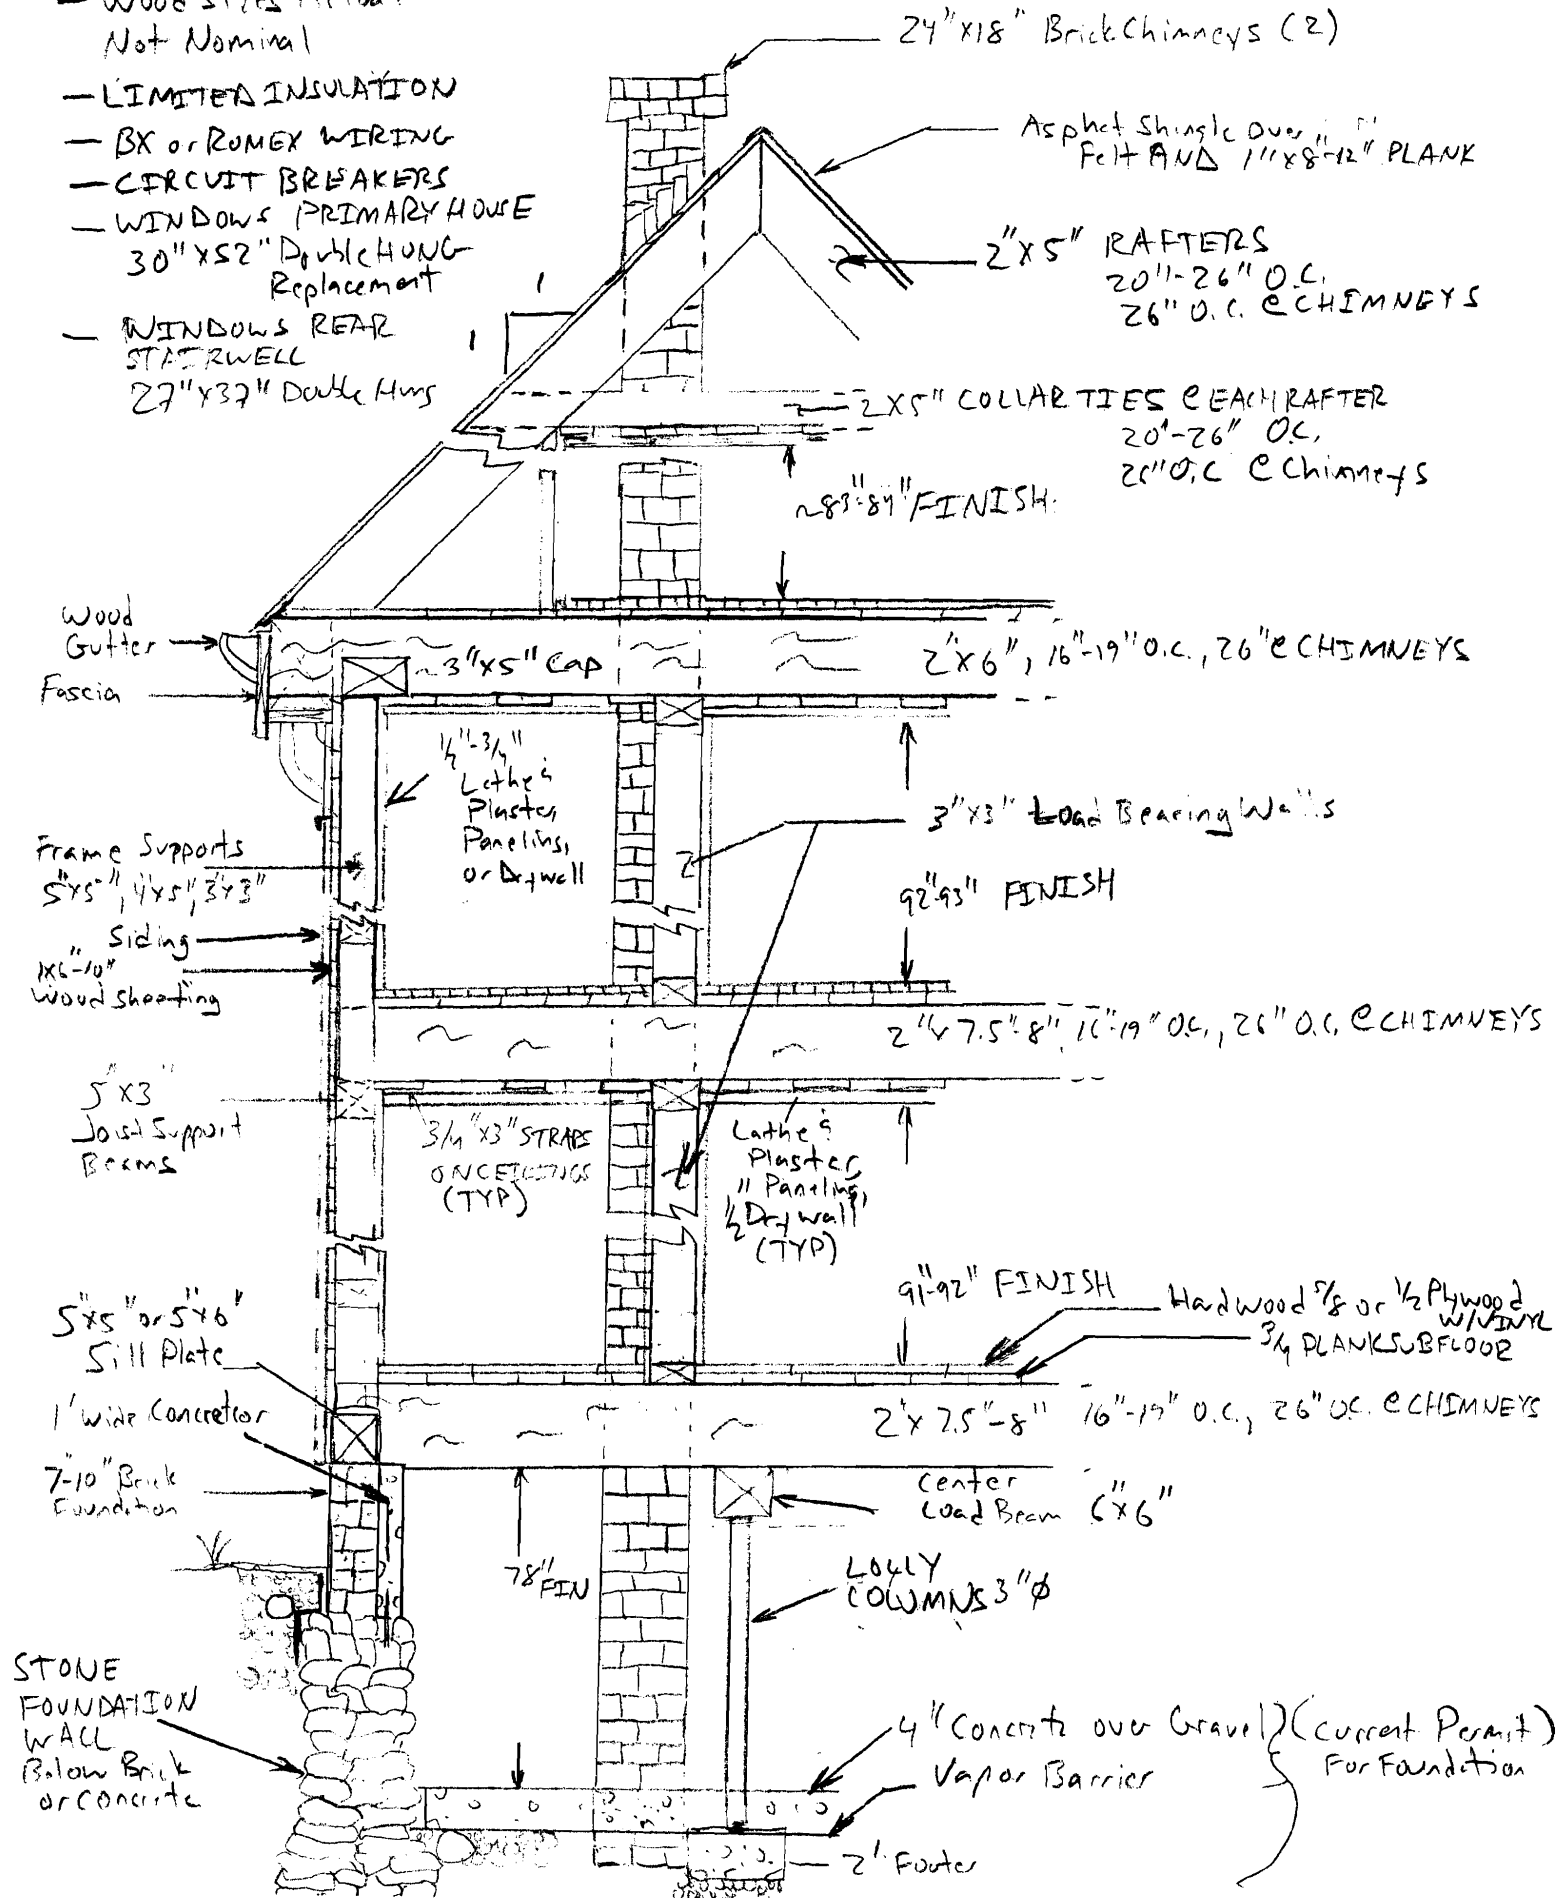 — Wood Sizes Actual
Not Nominal
— LIMITED INSULATION
— BX or ROMEX WIRING
— CIRCUIT BREAKERS
— WINDOWS PRIMARY HOUSE
30"x52" Double HUNG
Replacement
— WINDOWS REAR
STAIRWELL
27"x37" Double Hung
24"x18" Brick Chimneys (2)
Asphat Shingle Over
Felt AND 1"x8"-12" PLANK
2"x5" RAFTERS
20"-26" O.C.
26" O.C. @ CHIMNEYS
1
1
2x5" COLLAR TIES @ EACH RAFTER
20"-26" O.C.
26" O.C @ Chimneys
~83"-84" FINISH
Wood
Gutter
Fascia
~3"x5" Cap
2"x6", 16"-19" O.C., 26" @ CHIMNEYS
1/2"-3/4"
Lathe &
Plaster,
Paneling,
or Drywall
3"x3" Load Bearing Walls
Frame Supports
5"x5", 4"x5", 3"x3"
92"-93" FINISH
Siding
1x6"-10"
Wood sheeting
2"x 7.5"-8" 16"-19" O.C., 26" O.C. @ CHIMNEYS
5"x3"
Joist Support
Beams
3/4"x3" STRAPS
ON CEILINGS
(TYP)
Lathe &
Plaster,
" Paneling,
1/2 Drywall
(TYP)
91"-92" FINISH
Hardwood 5/8 or 1/2 Plywood
W/VINYL
3/4 PLANK SUBFLOOR
5"x5" or 5"x6"
Sill Plate
1' wide Concrete or
7-10" Brick
Foundation
2"x 7.5"-8" 16"-19" O.C., 26" O.C. @ CHIMNEYS
Center
Load Beam 6"x6"
78" FIN
LOLLY
COLUMNS 3" Ø
STONE
FOUNDATION
WALL
Below Brick
or Concrete
4" Concrete over Gravel (current Permit)
Vapor Barrier For Foundation
2' Footer